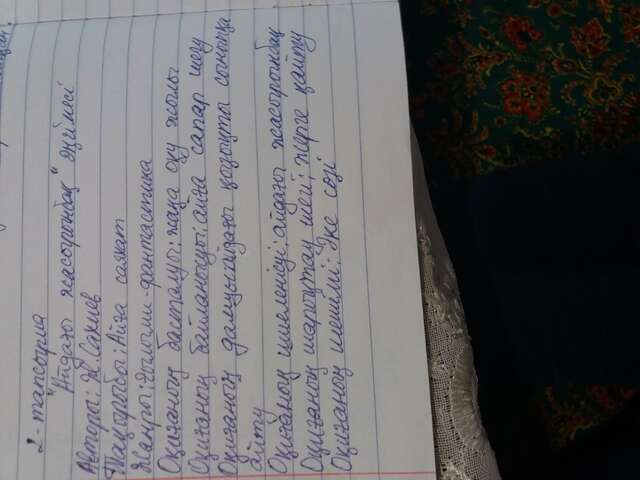 2-тапсырма
"Айдағы жасоғынбақ" әңгімесі
Авторы: Ж. Сахиев
Тақырыбы: Айға саяхат
Жанры: ғылыми-фантастика
Оқиғаның басталуы: жаңа оқу жылы
Оқиғаның байланысуы: айға сапар шегу
Оқиғаның дамуы: айдағы қозғалуы
айту
Оқиғаның шиеленісуі: айдағы
Оқиғаның шарықтау шегі: жерге қайту
Оқиғаның шешімі: Әке сөзі